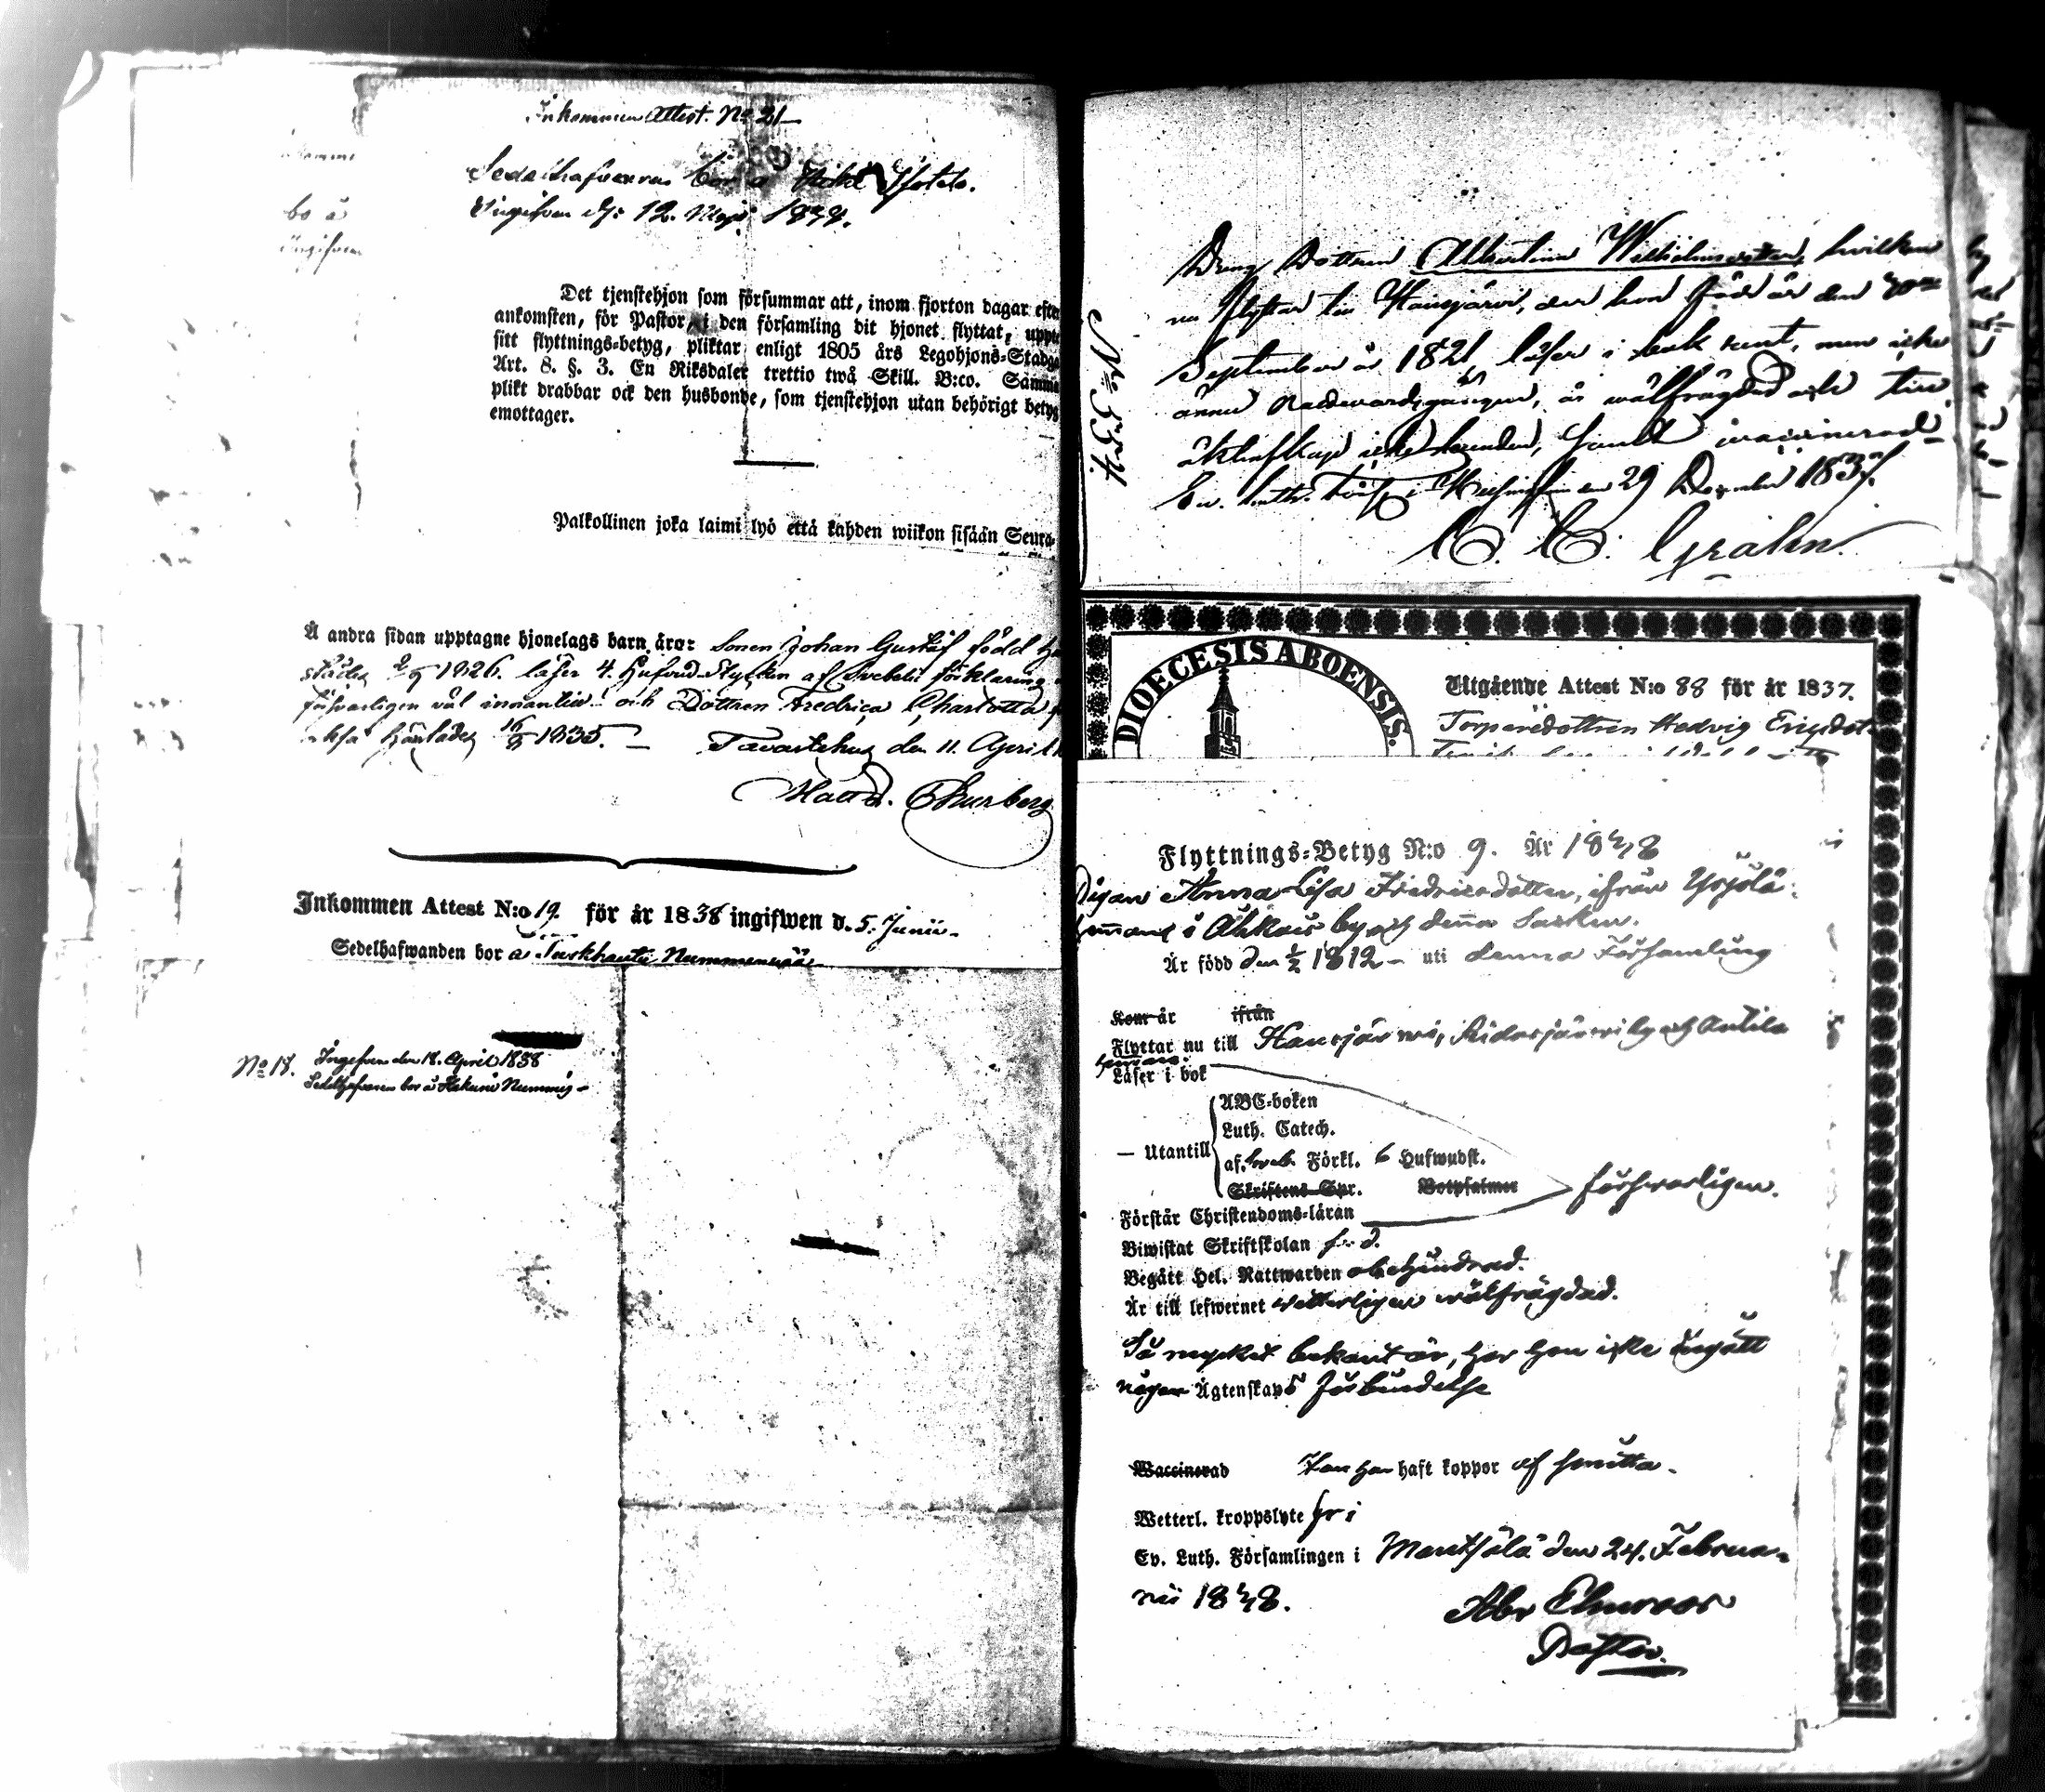 Inkommen Attest. No 21
Sedelhafvaren bor å
Ingifven d. 12 Maji 1838.
Det tjenstehjon som försummar att, inom fjorton dagar efte
ankomsten, för Pastor, i den församling dit hjonet flyttat, uppte
sitt flyttnings-betyg, pliktar enligt 1805 års Legohjons-Stadga
Art. 8. §. 3. En Riksdaler trettio twå Skill. B:co. Samma
plikt drabbar ock den husbonde, som tjenstehjon utan behörigt betyg
emottager.
Palkollinen joka laimi lyö että kahden wiikon sisään Seura-
Å andra sidan upptagne hjonelags barn äro: Sonen Johan Gustaf född
städes 1826. läser 4. Hufvud-Stycken af Svebelii förklaring
försvarligen väl innantill och Dottren Fredrica Charlotta
härstädes 1835. — Tavastehus den 11 April
Inkommen Attest N:o 19 för år 1838 ingifwen d. 5. Junii
Sedelhafwanden bor å Turkhauta
No 18. Ingifven den 18. April 1838
Sedelhafvaren bor å
No 554
Dreng Dottren Albertina Wilhelmsdotter, hvilken
nu flyttar till Hausjärvi, der hon född är den
September år 1821, läser i bok rent, men icke
ännu nattvardsgången, är wälfrägdad och till
äktenskap icke bunden, samt vaccinerad
Ev. Luth. i Helsingfors den 29 December 1837.
C. C. Grahn.
DIOECESIS ABOENSIS.
Utgående Attest N:o 88 för år 1837.
Torparedottren Hedvig Ericsdot
Flyttnings-Betyg N:o 9. År 1838
Pigan Anna Lisa Fredricsdotter, ifrån
hemmans i by och denna Socken.
Är född den 1/2 1812 — uti denna Församling
Kom år ifrån
Flyttar nu till Hausjärvi, Ridasjärvi by och Antila
hemman.
Läser i bok
— Utantill
ABC-boken
Luth. Catech.
af. Sveb. Förkl. 6 Hufwudst.
Skriftens Spr. Botpsalmer
försvarligen.
Förstår Christendoms-läran
Biwistat Skriftskolan
Begått Hel. Nattwarden obehindrad.
Är till lefwernet wetterligen wälfrägdad.
Så mycket bekant är, har hon icke ingått
någon Ägtenskaps förbindelse
Waccinerad Hon har haft koppor af smitta.
Wetterl. kroppslyte fri
Ev. Luth. Församlingen i Mäntsälä den 24. Februa-
rii 1838.
Pastor.